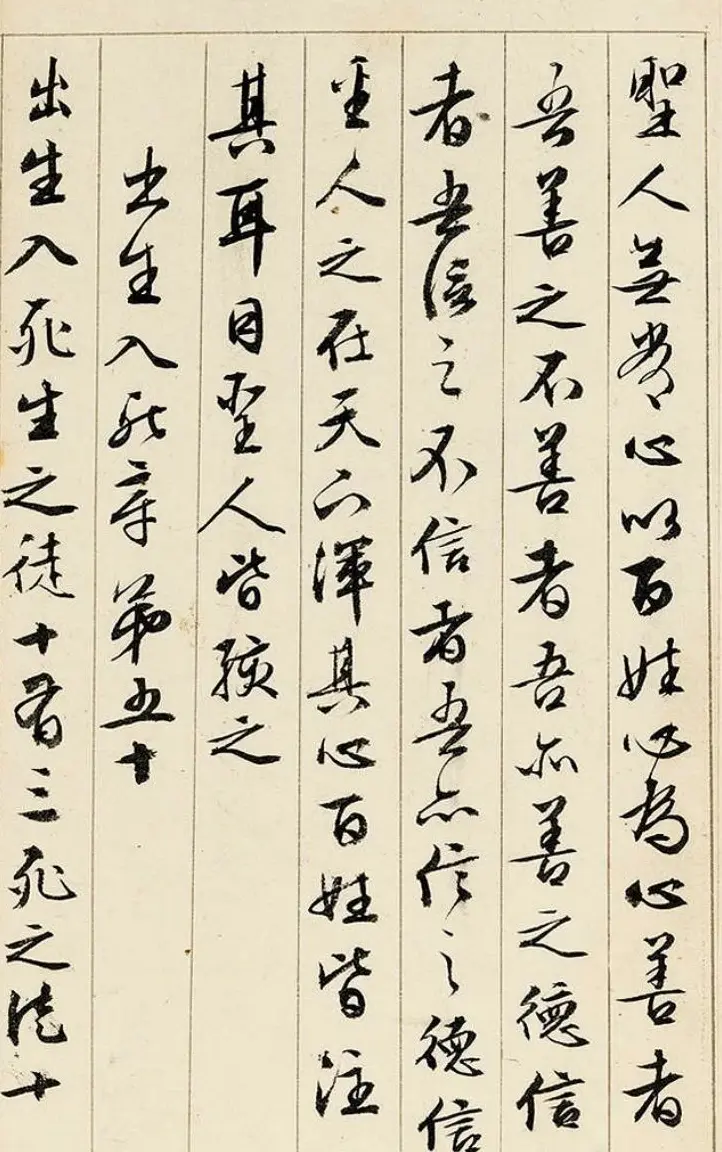 聖人無常心以百姓心為心善者
吾善之不善者吾亦善之德信
者吾信之不信者吾亦信之德信
聖人之在天下渾其心百姓皆注
其耳目聖人皆孩之
出生入死章第五十
出生入死生之徒十有三死之徒十